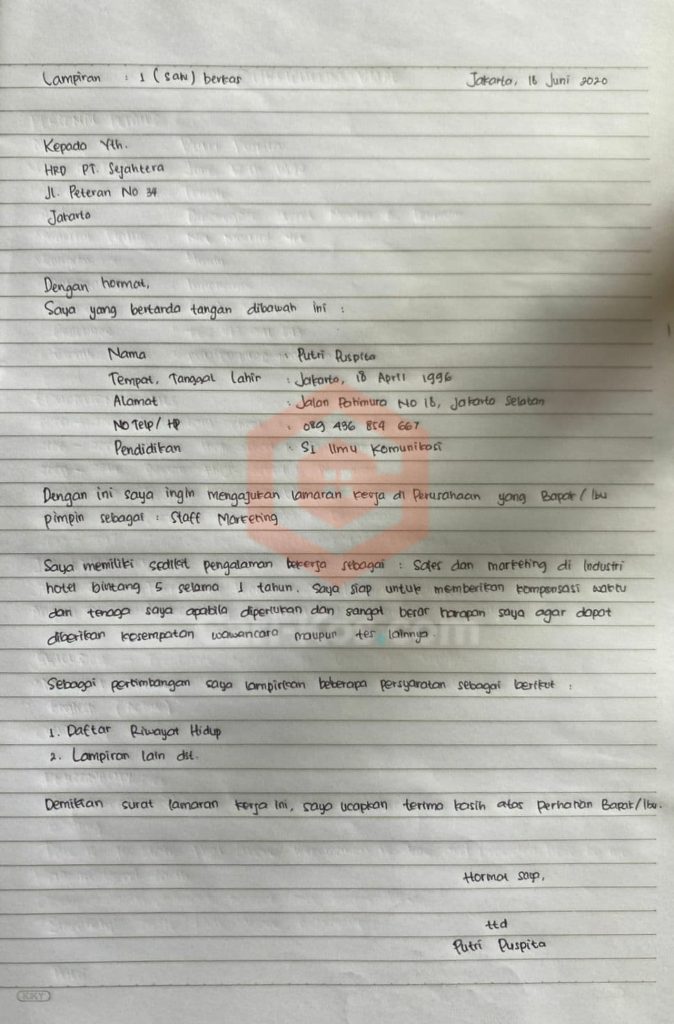 Lampiran : 1 (satu) berkas
Jakarta, 18 Juni 2020
Kepada Yth.
HRD PT. Sejahtera
Jl. Peteran No 34
Jakarta
Dengan hormat,
Saya yang bertanda tangan dibawah ini :
Nama : Putri Puspita
Tempat, Tanggal Lahir : Jakarta, 18 April 1996
Alamat : Jalan Patimura No 18, Jakarta Selatan
No Telp / HP : 089 436 854 667
Pendidikan : S1 Ilmu Komunikasi
Dengan ini saya ingin mengajukan lamaran kerja di Perusahaan yang Bapak / Ibu
pimpin sebagai : Staff Marketing
Saya memiliki sedikit pengalaman bekerja sebagai : Sales dan marketing di Industri
hotel bintang 5 selama 1 tahun. Saya siap untuk memberikan kompensasi waktu
dan tenaga saya apabila diperlukan dan sangat besar harapan saya agar dapat
diberikan kesempatan wawancara maupun tes lainnya.
Sebagai pertimbangan saya lampirkan beberapa persyaratan sebagai berikut :
1. Daftar Riwayat Hidup
2. Lampiran lain dll.
Demikian surat lamaran kerja ini, saya ucapkan terima kasih atas perhatian Bapak/Ibu.
Hormat saya,
ttd
Putri Puspita
KKY